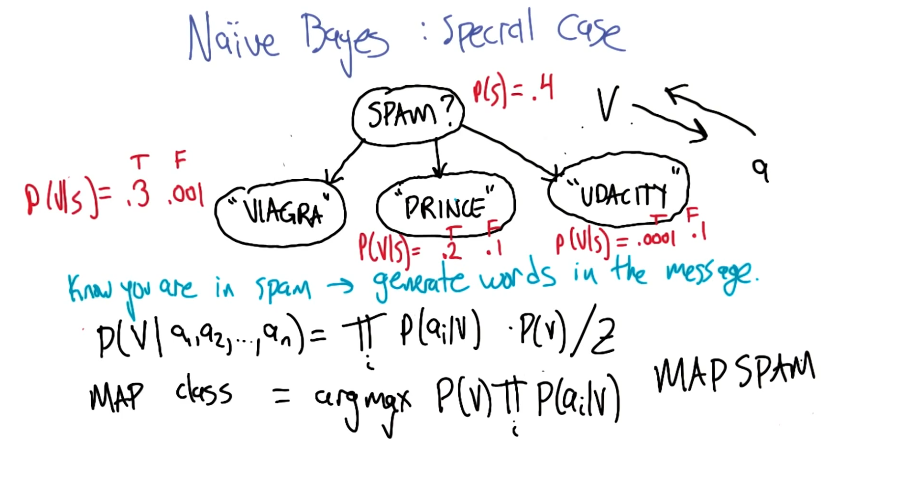 Naïve Bayes : Special Case
SPAM? P(s) = .4
V
a
T F
P(V|s) = .3 .001
"VIAGRA" "PRINCE" "UDACITY"
T F
P(V|s) = .2 .1
T F
P(V|s) = .0001 .1
Know you are in spam → generate words in the message.
P(V | a₁,a₂,...,aₙ) = ∏ᵢ P(aᵢ|V) · P(V) / Z
MAP class = argmax P(V) ∏ᵢ P(aᵢ|V) MAP SPAM